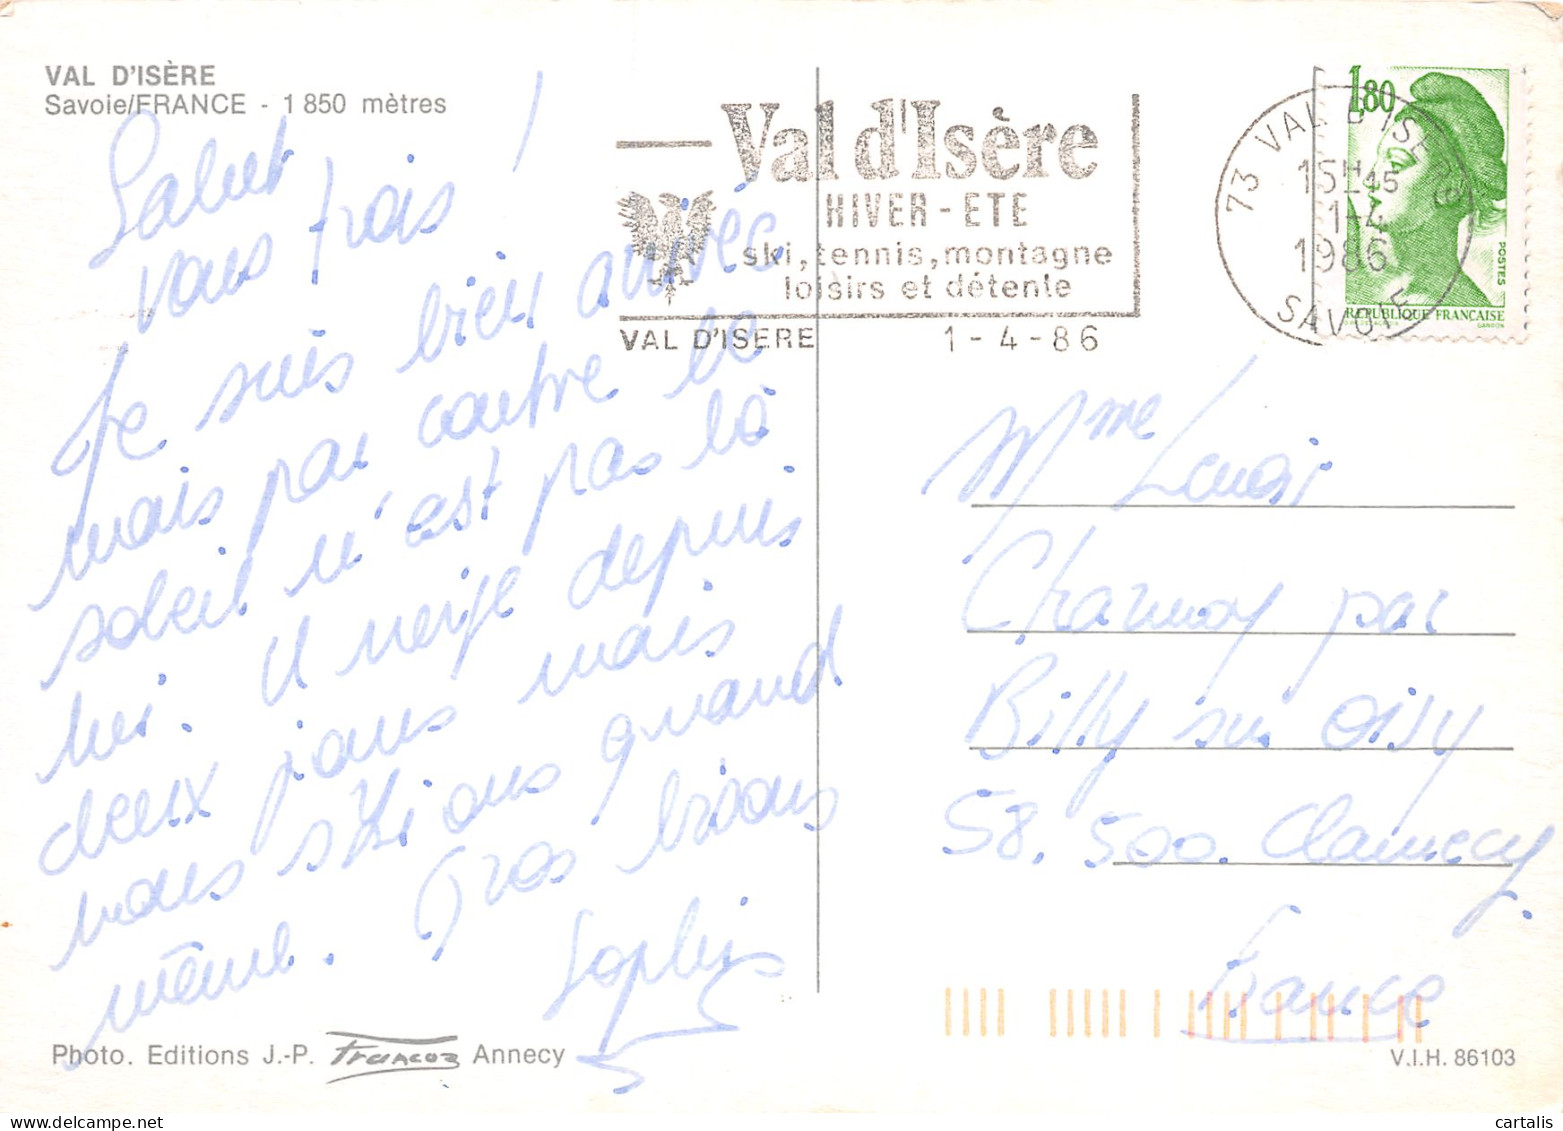 VAL D'ISÈRE
Savoie/FRANCE - 1 850 mètres
Salut
vous trois !
Je suis bien arrivée
mais par contre le
soleil n'est pas là
lui. Il neige depuis
deux jours mais
nous skions quand
même. Gros bisous
Sophie
Photo. Editions J.-P. Francoz Annecy
Val d'Isère
HIVER - ETE
ski, tennis, montagne
loisirs et détente
VAL D'ISERE 1 - 4 - 86
73 VAL D'ISERE
15H15
1-4
1986
SAVOIE
1,80
POSTES
REPUBLIQUE FRANCAISE
GANDON
Mme
Charmoy par
Billy sur Oisy
58.500. Clamecy.
France
V.I.H. 86103
cartalis